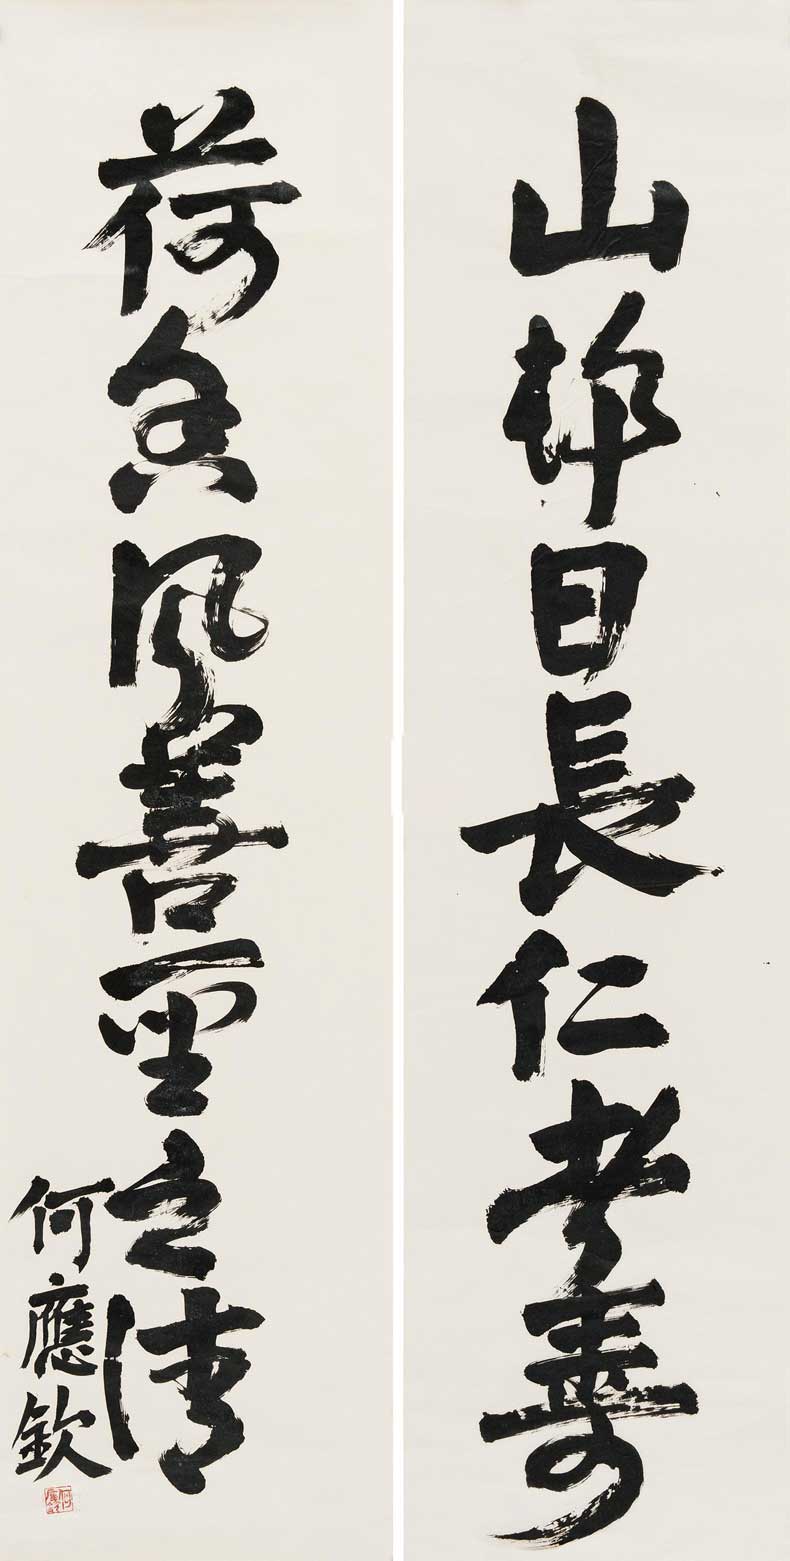 山靜日長仁者壽
荷香風善聖之清
何應欽